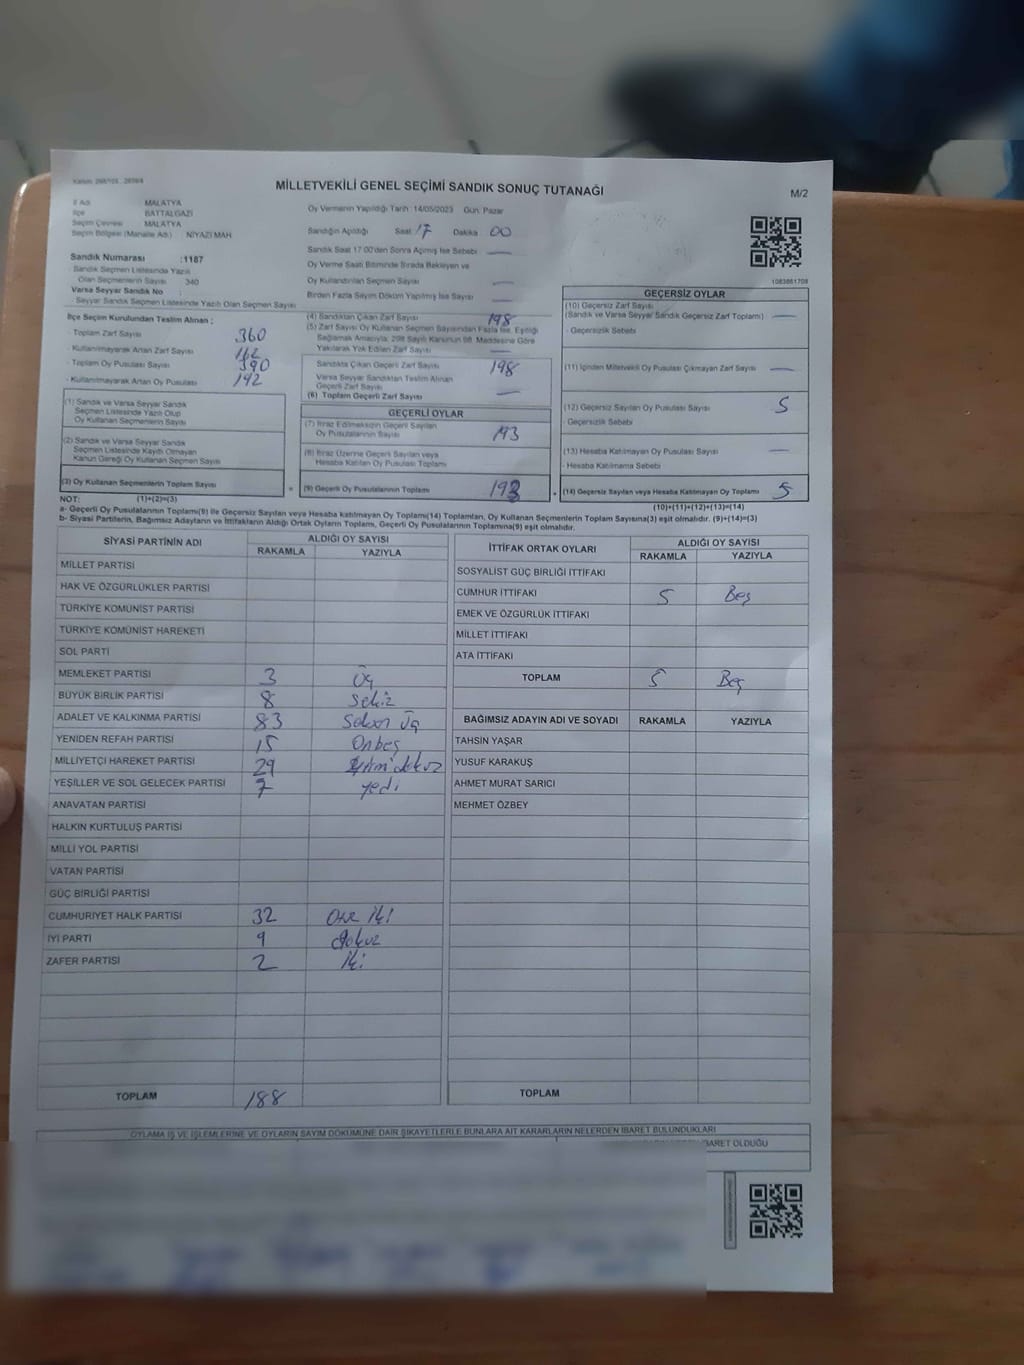 MİLLETVEKİLİ GENEL SEÇİMİ SANDIK SONUÇ TUTANAĞI
M/2
İl Adı MALATYA
İlçe BATTALGAZİ
Seçim Çevresi MALATYA
Seçim Bölgesi (Mahalle Adı) NİYAZİ MAH
Sandık Numarası :1187
Sandık Seçmen Listesinde Yazılı
Olan Seçmenlerin Sayısı 340
Varsa Seyyar Sandık No
Seyyar Sandık Seçmen Listesinde Yazılı Olan Seçmen Sayısı
Oy Vermenin Yapıldığı Tarih :14/05/2023 Gün: Pazar
Sandığın Açıldığı Saat 17 Dakika 00
Sandık Saat 17:00'den Sonra Açılmış İse Sebebi
Oy Verme Saati Bitiminde Sırada Bekleyen ve
Oy Kullandırılan Seçmen Sayısı
Birden Fazla Sayım Döküm Yapılmış İse Sayısı
1083861708
İlçe Seçim Kurulundan Teslim Alınan ;
- Toplam Zarf Sayısı 360
- Kullanılmayarak Artan Zarf Sayısı 162
- Toplam Oy Pusulası Sayısı 390
- Kullanılmayarak Artan Oy Pusulası 192
(1) Sandık ve Varsa Seyyar Sandık
Seçmen Listesinde Yazılı Olup
Oy Kullanan Seçmenlerin Sayısı
(2) Sandık ve Varsa Seyyar Sandık
Seçmen Listesinde Kaydı Olmayan
Kanun Gereği Oy Kullanan Seçmen Sayısı
(3) Oy Kullanan Seçmenlerin Toplam Sayısı
(4) Sandıktan Çıkan Zarf Sayısı 198
(5) Zarf Sayısı Oy Kullanan Seçmen Sayısından Fazla İse, Eşitliği
Sağlamak Amacıyla, 298 Sayılı Kanunun 98. Maddesine Göre
Yakılarak Yok Edilen Zarf Sayısı
Sandıkta Çıkan Geçerli Zarf Sayısı 198
Varsa Seyyar Sandıktan Teslim Alınan
Geçerli Zarf Sayısı
(6) Toplam Geçerli Zarf Sayısı
GEÇERLİ OYLAR
(7) İtiraz Edilmeksizin Geçerli Sayılan
Oy Pusulalarının Sayısı 193
(8) İtiraz Üzerine Geçerli Sayılan veya
Hesaba Katılan Oy Pusulası Toplamı
= (9) Geçerli Oy Pusulalarının Toplamı 193
GEÇERSİZ OYLAR
(10) Geçersiz Zarf Sayısı
(Sandık ve Varsa Seyyar Sandık Geçersiz Zarf Toplamı)
- Geçersizlik Sebebi
(11) İçinden Milletvekili Oy Pusulası Çıkmayan Zarf Sayısı
(12) Geçersiz Sayılan Oy Pusulası Sayısı 5
- Geçersizlik Sebebi
(13) Hesaba Katılmayan Oy Pusulası Sayısı
- Hesaba Katılmama Sebebi
+ (14) Geçersiz Sayılan veya Hesaba Katılmayan Oy Toplamı 5
NOT: (1)+(2)=(3)
(10)+(11)+(12)+(13)=(14)
a- Geçerli Oy Pusulalarının Toplamı(9) ile Geçersiz Sayılan veya Hesaba katılmayan Oy Toplamı(14) Toplamları, Oy Kullanan Seçmenlerin Toplam Sayısına(3) eşit olmalıdır. (9)+(14)=(3)
b- Siyasi Partilerin, Bağımsız Adayların ve İttifakların Aldığı Ortak Oyların Toplamı, Geçerli Oy Pusulalarının Toplamına(9) eşit olmalıdır.
SİYASİ PARTİNİN ADI ALDIĞI OY SAYISI
RAKAMLA YAZIYLA
MİLLET PARTİSİ
HAK VE ÖZGÜRLÜKLER PARTİSİ
TÜRKİYE KOMÜNİST PARTİSİ
TÜRKİYE KOMÜNİST HAREKETİ
SOL PARTİ
MEMLEKET PARTİSİ 3 Üç
BÜYÜK BİRLİK PARTİSİ 8 Sekiz
ADALET VE KALKINMA PARTİSİ 83 Seksen Üç
YENİDEN REFAH PARTİSİ 15 Onbeş
MİLLİYETÇİ HAREKET PARTİSİ 29 Yirmi dokuz
YEŞİLLER VE SOL GELECEK PARTİSİ 7 yedi
ANAVATAN PARTİSİ
HALKIN KURTULUŞ PARTİSİ
MİLLİ YOL PARTİSİ
VATAN PARTİSİ
GÜÇ BİRLİĞİ PARTİSİ
CUMHURİYET HALK PARTİSİ 32 Otuz İki
İYİ PARTİ 9 dokuz
ZAFER PARTİSİ 2 İki
TOPLAM 188
İTTİFAK ORTAK OYLARI ALDIĞI OY SAYISI
RAKAMLA YAZIYLA
SOSYALİST GÜÇ BİRLİĞİ İTTİFAKI
CUMHUR İTTİFAKI 5 Beş
EMEK VE ÖZGÜRLÜK İTTİFAKI
MİLLET İTTİFAKI
ATA İTTİFAKI
TOPLAM 5 Beş
BAĞIMSIZ ADAYIN ADI VE SOYADI RAKAMLA YAZIYLA
TAHSİN YAŞAR
YUSUF KARAKUŞ
AHMET MURAT SARICI
MEHMET ÖZBEY
TOPLAM
OYLAMA İŞ VE İŞLEMLERİNE VE OYLARIN SAYIM DÖKÜMÜNE DAİR ŞİKAYETLERLE BUNLARA AİT KARARLARIN NELERDEN İBARET BULUNDUKLARI
BARET OLDUĞU